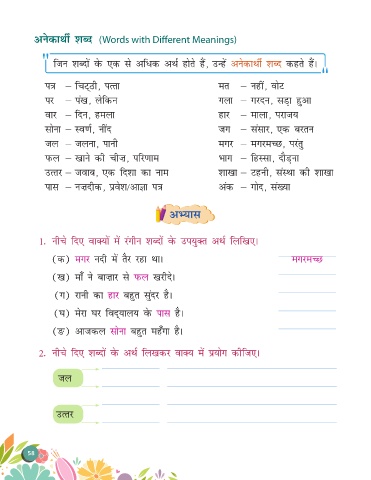 अनेकार्थी शब्द (Words with Different Meanings)
"जिन शब्दों के एक से अधिक अर्थ होते हैं, उन्हें अनेकार्थी शब्द कहते हैं।"
पत्र – चिट्ठी, पत्ता
मत – नहीं, वोट
पर – पंख, लेकिन
गला – गरदन, सड़ा हुआ
वार – दिन, हमला
हार – माला, पराजय
सोना – स्वर्ण, नींद
जग – संसार, एक बरतन
जल – जलना, पानी
मगर – मगरमच्छ, परंतु
फल – खाने की चीज़, परिणाम
भाग – हिस्सा, दौड़ना
उत्तर – जवाब, एक दिशा का नाम
शाखा – टहनी, संस्था की शाखा
पास – नज़दीक, प्रवेश/आज्ञा पत्र
अंक – गोद, संख्या
अभ्यास
1. नीचे दिए वाक्यों में रंगीन शब्दों के उपयुक्त अर्थ लिखिए।
(क) मगर नदी में तैर रहा था। मगरमच्छ
(ख) माँ ने बाज़ार से फल खरीदे।
(ग) रानी का हार बहुत सुंदर है।
(घ) मेरा घर विद्यालय के पास है।
(ङ) आजकल सोना बहुत महँगा है।
2. नीचे दिए शब्दों के अर्थ लिखकर वाक्य में प्रयोग कीजिए।
जल
उत्तर
58